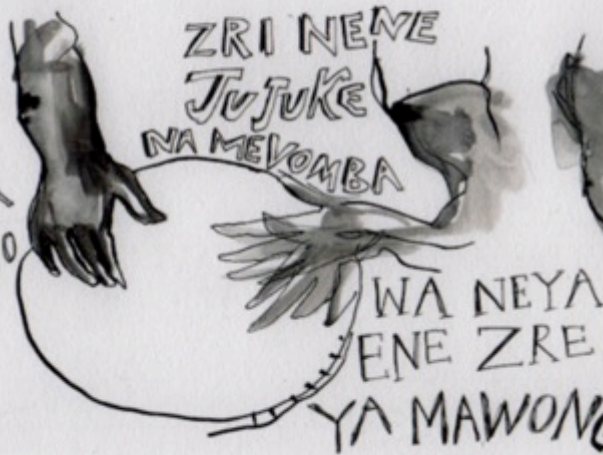 ZRI NENE
JUJUKE
NA MEVOMBA
O
WA NEYA
ENE ZRE
YA MAWONG